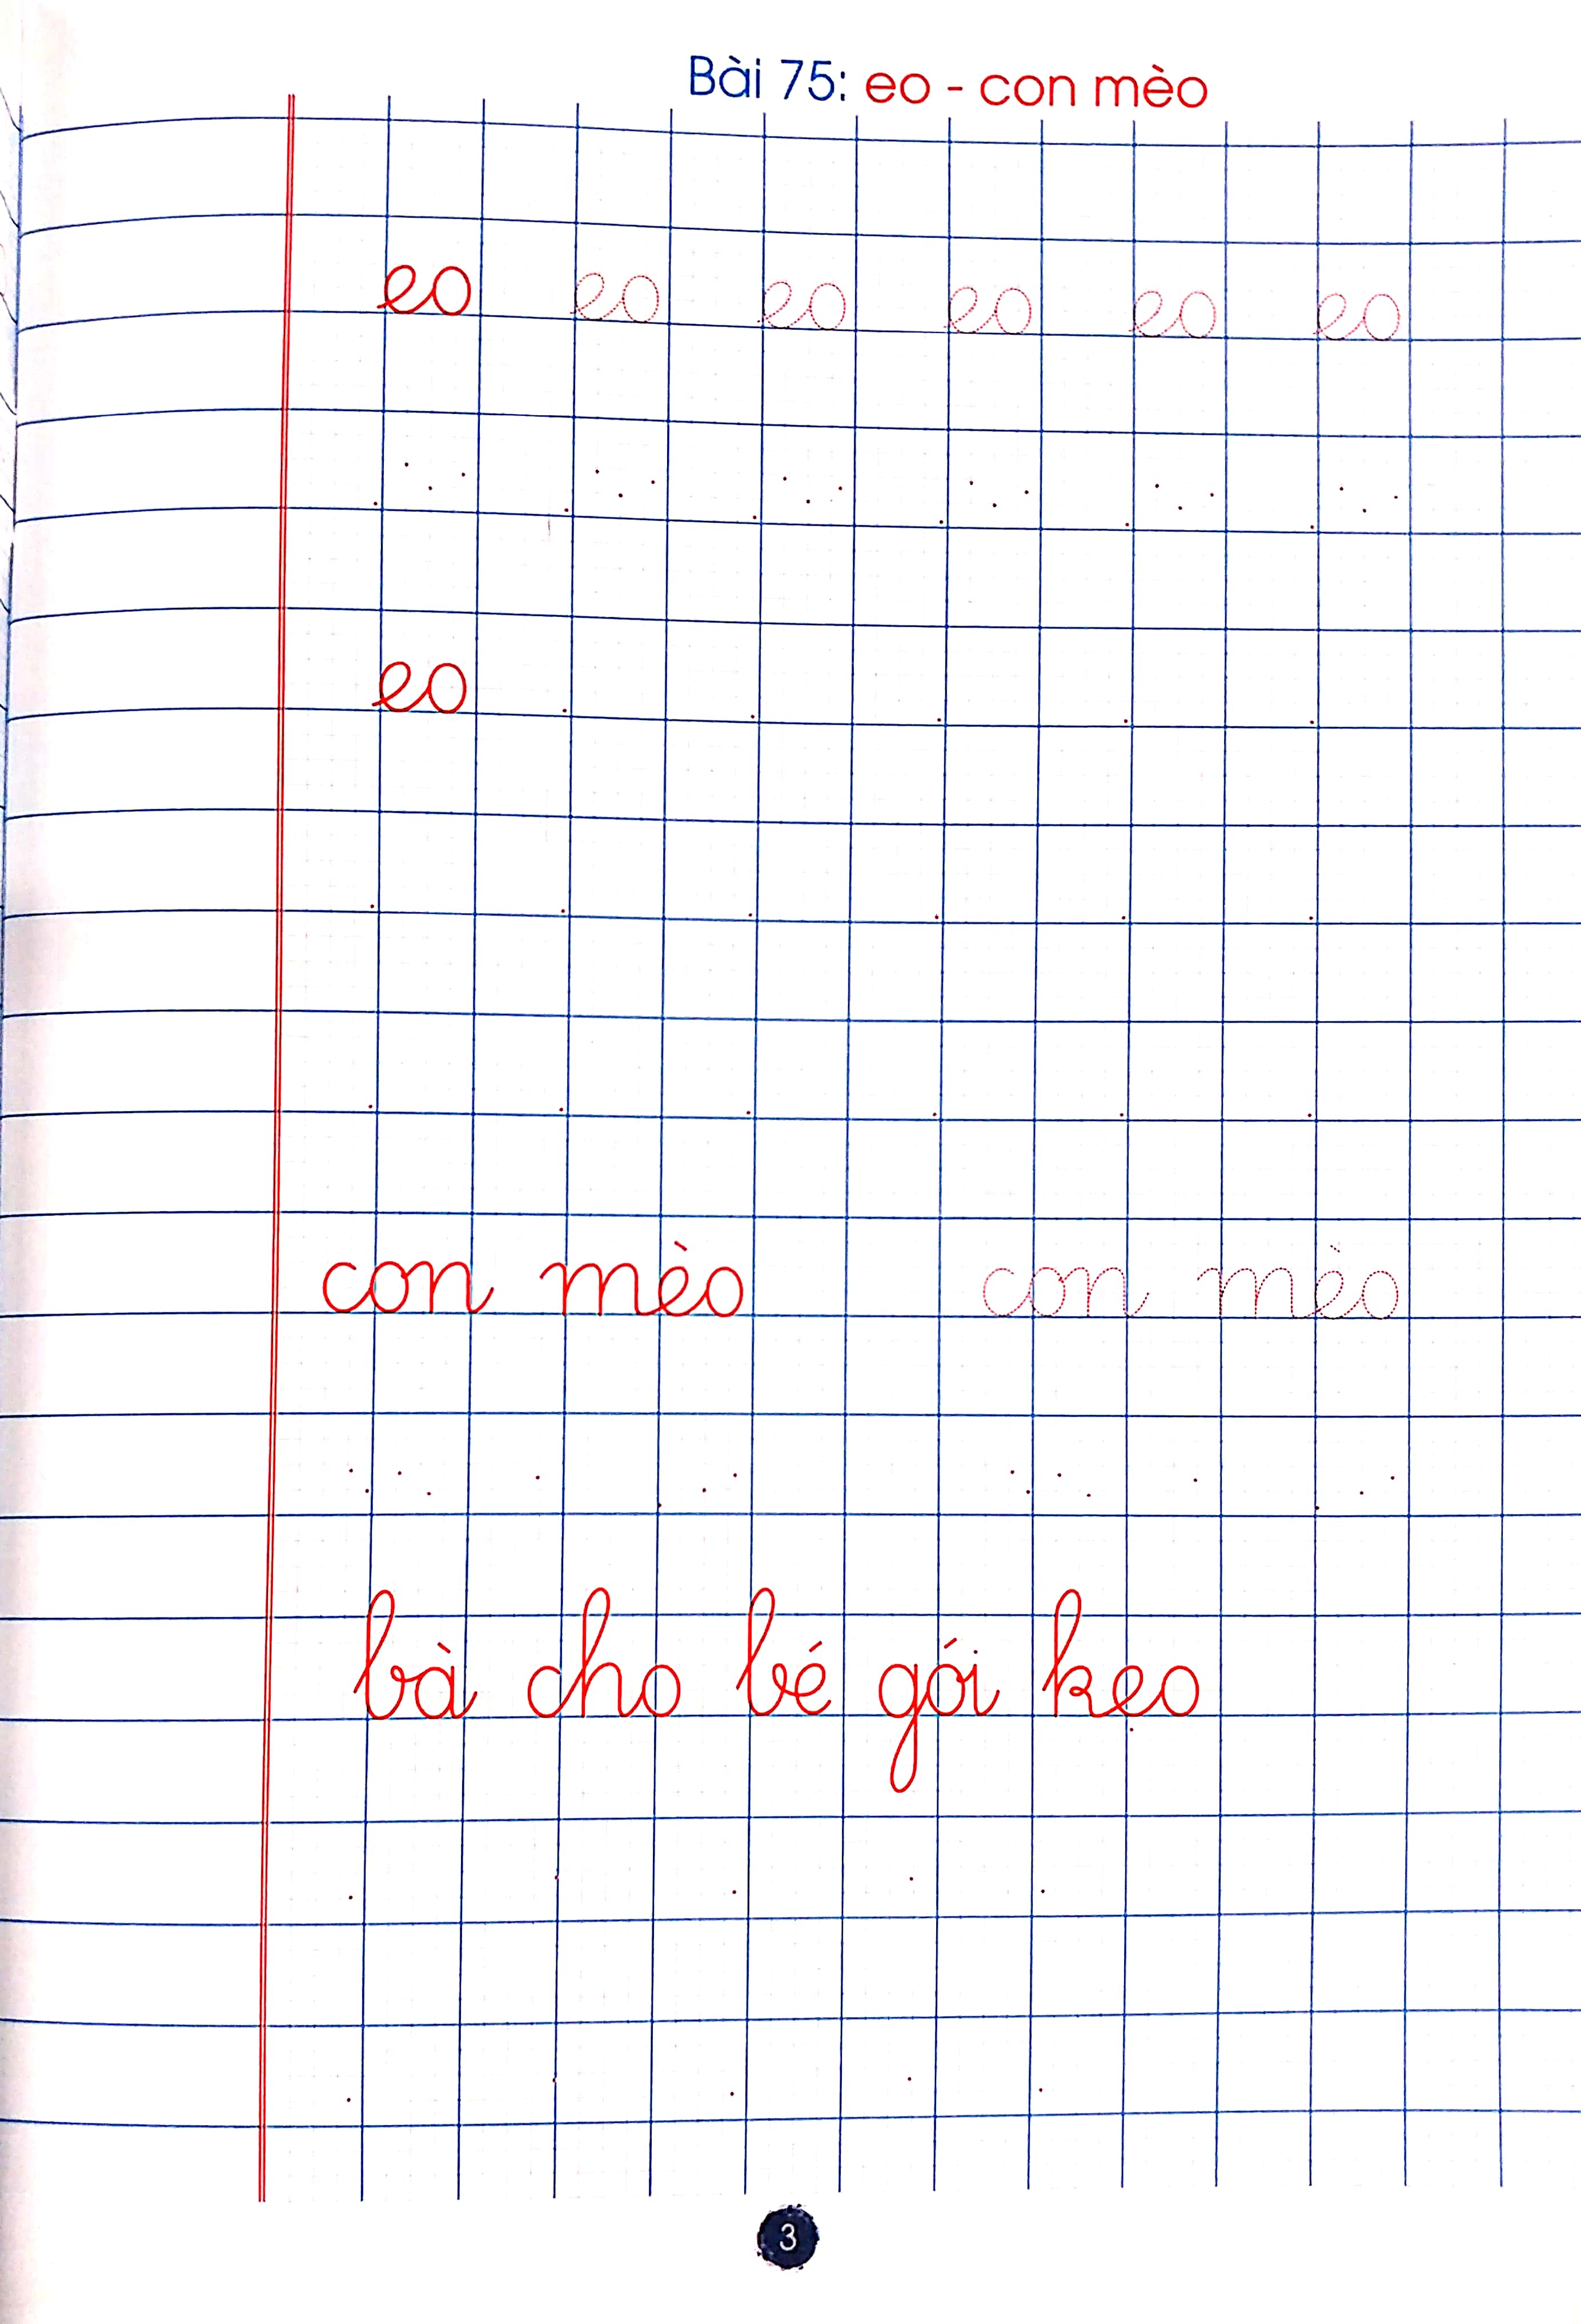 Bài 75: eo - con mèo
eo eo eo eo eo eo
eo
con mèo con mèo
bà cho bé gói kẹo
3